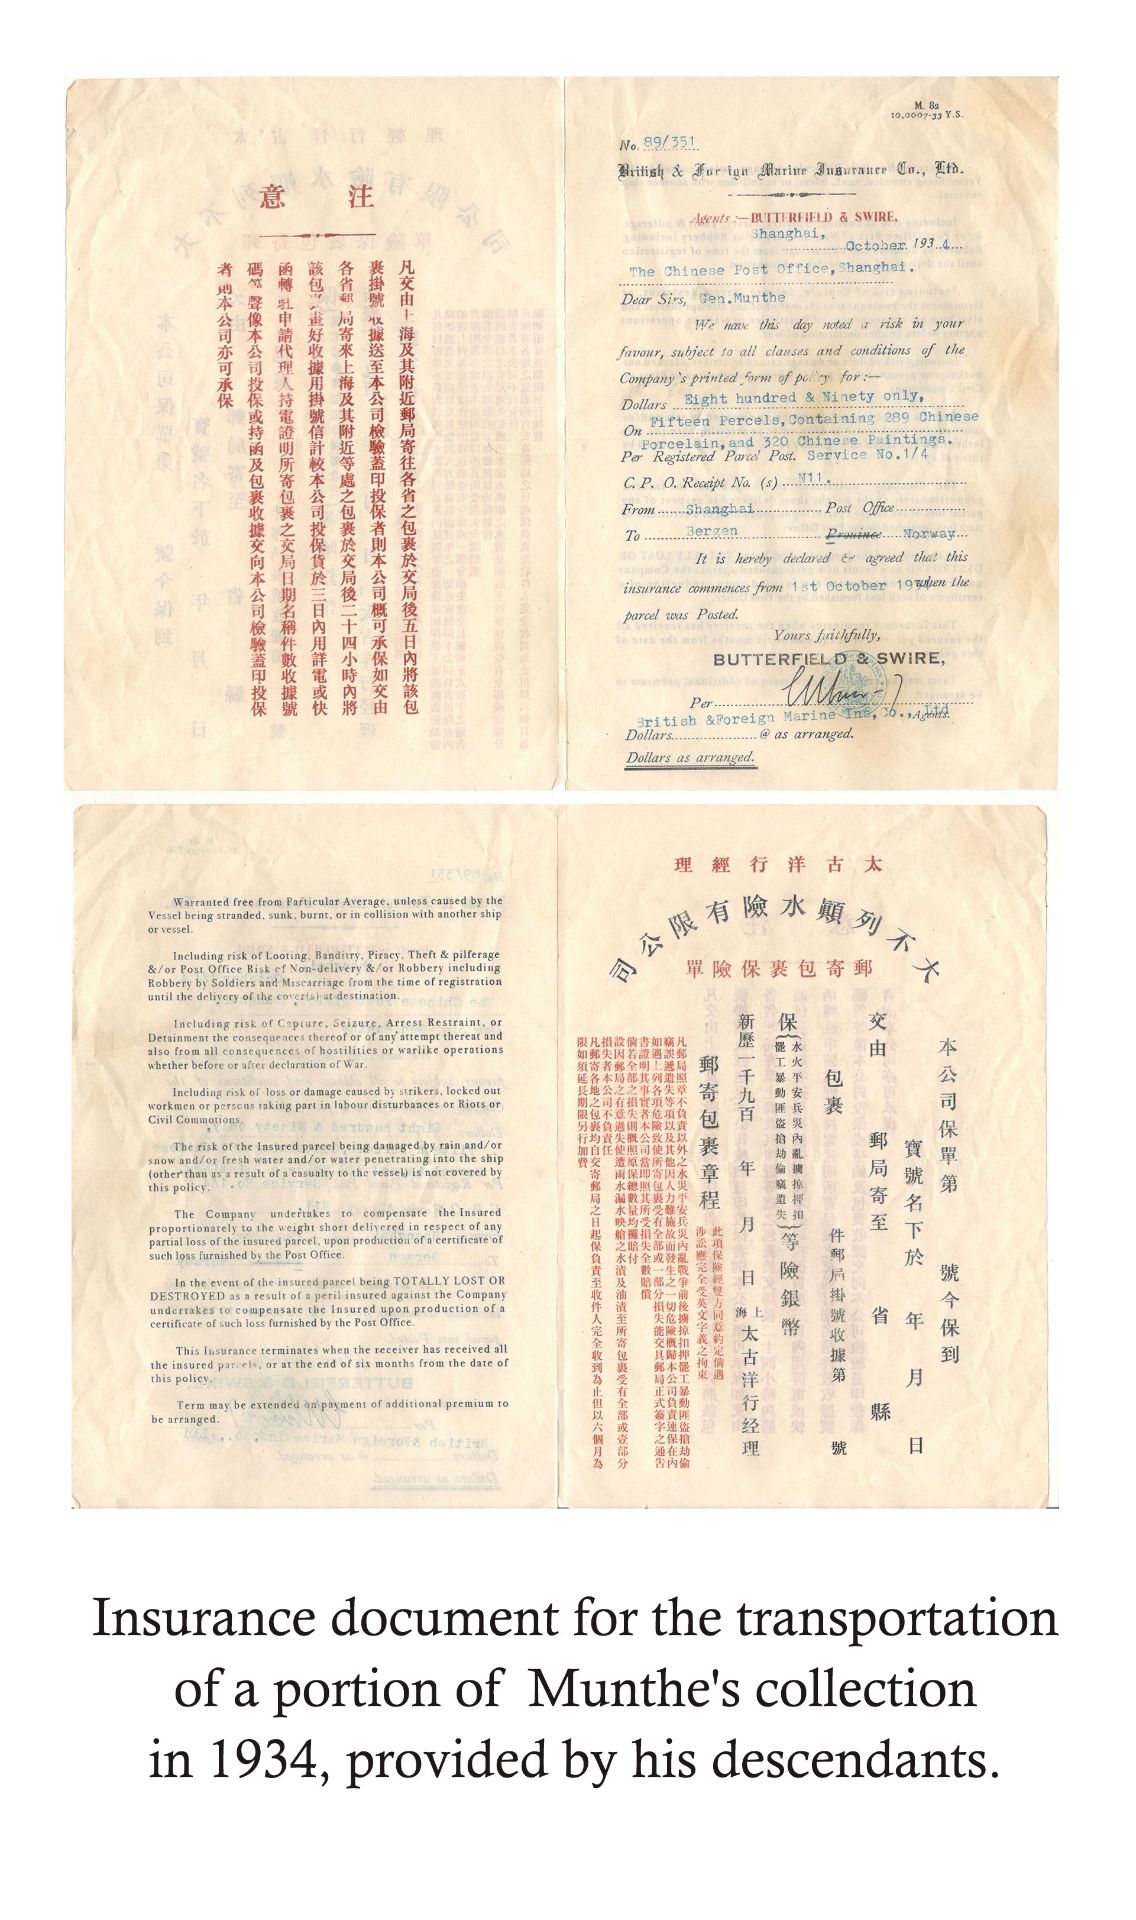 意 注
凡交由上海及其附近郵局寄往各省之包裹於交局後五日內將該包
裹掛號收據送至本公司檢驗蓋印投保者則本公司概可承保如交由
各省郵局寄來上海及其附近等處之包裹於交局後二十四小時內將
該包裹畫好收據用掛號信計較本公司投保貨於三日內用詳電或快
函轉駐申請代理人持電證明所寄包裹之交局日期名稱件數收據號
碼等聲像本公司投保或持函及包裹收據交向本公司檢驗蓋印投保
者則本公司亦可承保
M. 82
10,0007-33 Y.S.
No. 89/351
British & Foreign Marine Insurance Co., Ltd.
Agents:—BUTTERFIELD & SWIRE,
Shanghai,
October 1934
The Chinese Post Office, Shanghai.
Dear Sirs, Gen.Munthe
We have this day noted a risk in your
favour, subject to all clauses and conditions of the
Company's printed form of policy for:—
Dollars Eight hundred & Ninety only,
On Fifteen Percels, Containing 289 Chinese
Porcelain, and 320 Chinese Paintings.
Per Registered Parcel Post. Service No.1/4
C. P. O. Receipt No. (s) N11.
From Shanghai Post Office
To Bergen Province Norway
It is hereby declared & agreed that this
insurance commences from 1st October 1934 when the
parcel was Posted.
Yours faithfully,
BUTTERFIELD & SWIRE,
Per
British &Foreign Marine Ins, Co., Ltd Agents.
Dollars @ as arranged.
Dollars as arranged.
Warranted free from Particular Average, unless caused by the
Vessel being stranded, sunk, burnt, or in collision with another ship
or vessel.
Including risk of Looting, Banditry, Piracy, Theft & pilferage
&/or Post Office Risk of Non-delivery &/or Robbery including
Robbery by Soldiers and Miscarriage from the time of registration
until the delivery of the cover(s) at destination.
Including risk of Capture, Seizure, Arrest Restraint, or
Detainment the consequences thereof or of any attempt thereat and
also from all consequences of hostilities or warlike operations
whether before or after declaration of War.
Including risk of loss or damage caused by strikers, locked out
workmen or persons taking part in labour disturbances or Riots or
Civil Commotions.
The risk of the Insured parcel being damaged by rain and/or
snow and/or fresh water and/or water penetrating into the ship
(other than as a result of a casualty to the vessel) is not covered by
this policy.
The Company undertakes to compensate the Insured
proportionately to the weight short delivered in respect of any
partial loss of the insured parcel, upon production of a certificate of
such loss furnished by the Post Office.
In the event of the insured parcel being TOTALLY LOST OR
DESTROYED as a result of a peril insured against the Company
undertakes to compensate the Insured upon production of a
certificate of such loss furnished by the Post Office.
This Insurance terminates when the receiver has received all
the insured parcels, or at the end of six months from the date of
this policy.
Term may be extended on payment of additional premium to
be arranged.
理經行洋古太
司公限有險水顚列不大
單險保裹包寄郵
本公司保單第 號今保到
寶號名下於 年 月 日
交由 郵局寄至 省 縣
包裹 件郵局掛號收據第 號
保 水火平安兵災內亂擄掠押扣 罷工暴動匪盜搶劫偷竊遺失 等險銀幣
新歷一千九百 年 月 日 上海 太古洋行经理
郵寄包裹章程 此項保險經雙方同意約定倘遇
涉訟應完全受英文字義之拘束
凡郵局照章不負責以外之水災平安兵災內亂戰爭前後擄掠扣押罷工暴動匪盜搶劫偷
竊誤遞遺失等項以及其他因人力難施故而發生之一切危險概歸本公司負責連保在內
如遇上列各項危險致使所寄包裹受有全部或一部分損失能交具郵局正式簽字之通告
書證明其事實者本公司當即照其所受損失全數賠償
倘若全部之損失則概照原保總數量均攤賠付
設因郵局之有意過失使遭雨水漏水映艙之水漬及油漬至所寄包裹受有全部或壹部分
損失者本公司不負責任
凡郵寄各地之包裹均自交寄郵局之日起保負責至收件人完全收到為止但以六個月為
限如須延長期限另行加費
Insurance document for the transportation
of a portion of Munthe's collection
in 1934, provided by his descendants.